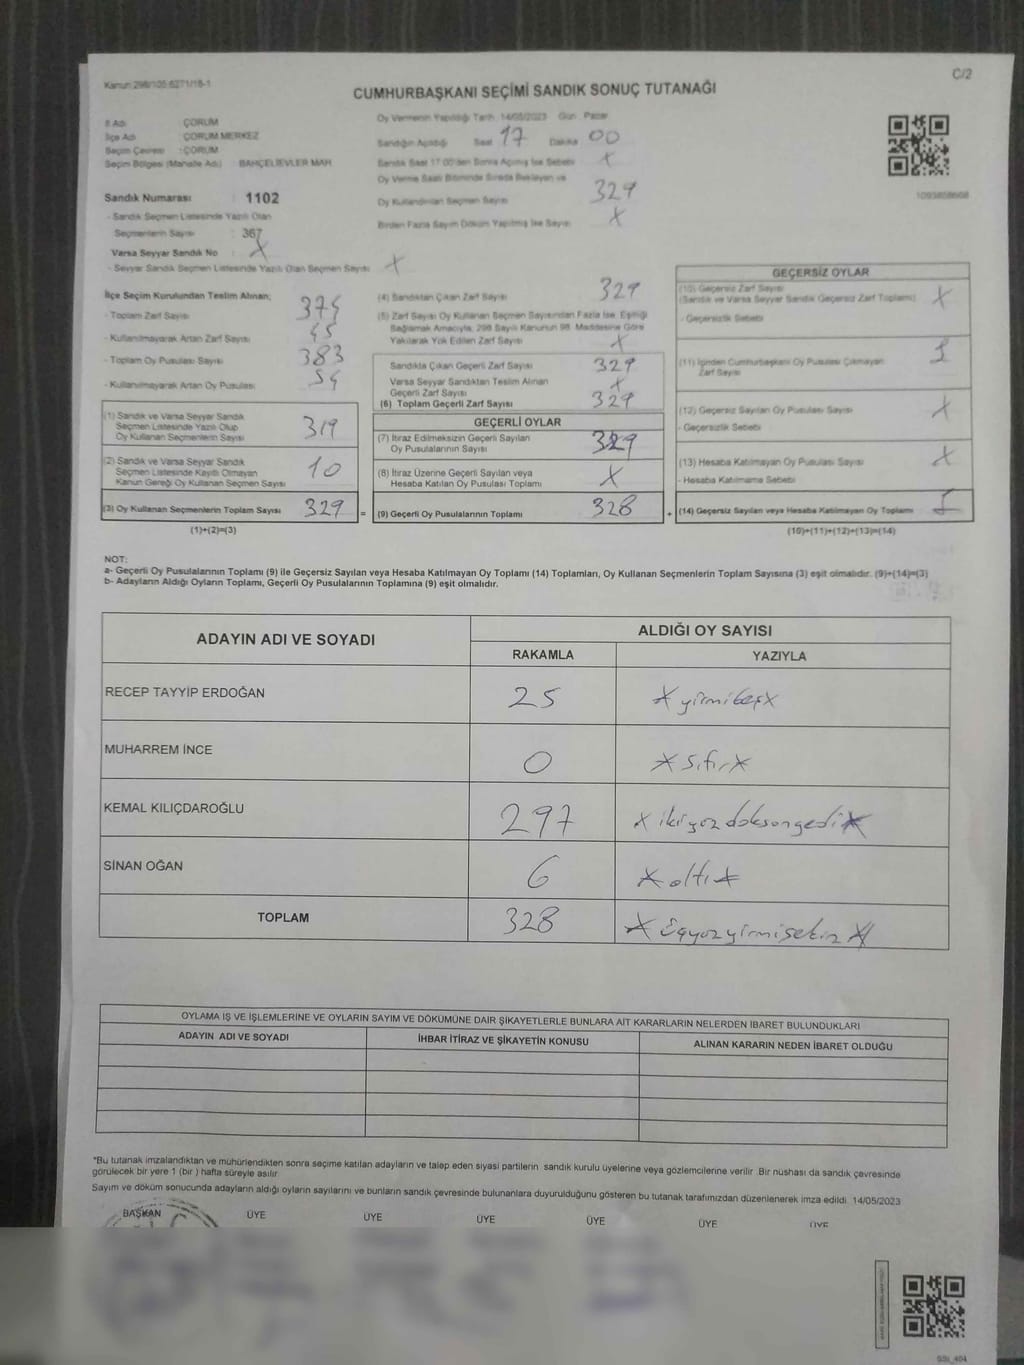 Kanun:298/105 6271/18-1
C/2
CUMHURBAŞKANI SEÇİMİ SANDIK SONUÇ TUTANAĞI
İl Adı : ÇORUM
İlçe Adı : ÇORUM MERKEZ
Seçim Çevresi : ÇORUM
Seçim Bölgesi (Mahalle Adı) : BAHÇELİEVLER MAH.
Sandık Numarası : 1102
- Sandık Seçmen Listesinde Yazılı Olan
Seçmenlerin Sayısı : 367
Varsa Seyyar Sandık No : X
- Seyyar Sandık Seçmen Listesinde Yazılı Olan Seçmen Sayısı X
Oy Vermenin Yapıldığı Tarih: 14/05/2023 Gün: Pazar
Sandığın Açıldığı Saat 17 Dakika 00
Sandık Saat 17.00'den Sonra Açılmış İse Sebebi X
Oy Verme Saati Bitiminde Sırada Bekleyen ve
Oy Kullandırılan Seçmen Sayısı 329
Birden Fazla Sayım Döküm Yapılmış İse Sayısı X
1093858608
İlçe Seçim Kurulundan Teslim Alınan;
- Toplam Zarf Sayısı 374
- Kullanılmayarak Artan Zarf Sayısı 45
- Toplam Oy Pusulası Sayısı 383
- Kullanılmayarak Artan Oy Pusulası 54
(1) Sandık ve Varsa Seyyar Sandık
Seçmen Listesinde Yazılı Olup
Oy Kullanan Seçmenlerin Sayısı 319
(2) Sandık ve Varsa Seyyar Sandık
Seçmen Listesinde Kayıtlı Olmayan
Kanun Gereği Oy Kullanan Seçmen Sayısı 10
(3) Oy Kullanan Seçmenlerin Toplam Sayısı 329
(1)+(2)=(3)
=
(4) Sandıktan Çıkan Zarf Sayısı 329
(5) Zarf Sayısı Oy Kullanan Seçmen Sayısından Fazla İse, Eşitliği
Sağlamak Amacıyla, 298 Sayılı Kanunun 98. Maddesine Göre
Yakılarak Yok Edilen Zarf Sayısı X
Sandıkta Çıkan Geçerli Zarf Sayısı 329
Varsa Seyyar Sandıktan Teslim Alınan
Geçerli Zarf Sayısı X
(6) Toplam Geçerli Zarf Sayısı 329
GEÇERLİ OYLAR
(7) İtiraz Edilmeksizin Geçerli Sayılan
Oy Pusulalarının Sayısı 329
(8) İtiraz Üzerine Geçerli Sayılan veya
Hesaba Katılan Oy Pusulası Toplamı X
(9) Geçerli Oy Pusulalarının Toplamı 328
+
GEÇERSİZ OYLAR
(10) Geçersiz Zarf Sayısı
(Sandık ve Varsa Seyyar Sandık Geçersiz Zarf Toplamı) X
- Geçersizlik Sebebi
(11) İçinden Cumhurbaşkanı Oy Pusulası Çıkmayan
Zarf Sayısı 1
(12) Geçersiz Sayılan Oy Pusulası Sayısı X
- Geçersizlik Sebebi
(13) Hesaba Katılmayan Oy Pusulası Sayısı X
- Hesaba Katılmama Sebebi
(14) Geçersiz Sayılan veya Hesaba Katılmayan Oy Toplamı 1
(10)+(11)+(12)+(13)=(14)
NOT:
a- Geçerli Oy Pusulalarının Toplamı (9) ile Geçersiz Sayılan veya Hesaba Katılmayan Oy Toplamı (14) Toplamları, Oy Kullanan Seçmenlerin Toplam Sayısına (3) eşit olmalıdır. (9)+(14)=(3)
b- Adayların Aldığı Oyların Toplamı, Geçerli Oy Pusulalarının Toplamına (9) eşit olmalıdır.
ADAYIN ADI VE SOYADI
ALDIĞI OY SAYISI
RAKAMLA YAZIYLA
RECEP TAYYİP ERDOĞAN 25 X yirmibeş X
MUHARREM İNCE 0 X sıfır X
KEMAL KILIÇDAROĞLU 297 X ikiyüzdoksanyedi X
SİNAN OĞAN 6 X altı X
TOPLAM 328 X üçyüzyirmisekiz X
OYLAMA İŞ VE İŞLEMLERİNE VE OYLARIN SAYIM VE DÖKÜMÜNE DAİR ŞİKAYETLERLE BUNLARA AİT KARARLARIN NELERDEN İBARET BULUNDUKLARI
ADAYIN ADI VE SOYADI İHBAR İTİRAZ VE ŞİKAYETİN KONUSU ALINAN KARARIN NEDEN İBARET OLDUĞU
*Bu tutanak imzalandıktan ve mühürlendikten sonra seçime katılan adayların ve talep eden siyasi partilerin sandık kurulu üyelerine veya gözlemcilerine verilir. Bir nüshası da sandık çevresinde
görülecek bir yere 1 (bir ) hafta süreyle asılır.
Sayım ve döküm sonucunda adayların aldığı oyların sayılarını ve bunların sandık çevresinde bulunanlara duyurulduğunu gösteren bu tutanak tarafımızdan düzenlenerek imza edildi. 14/05/2023
BAŞKAN ÜYE ÜYE ÜYE ÜYE ÜYE ÜYE